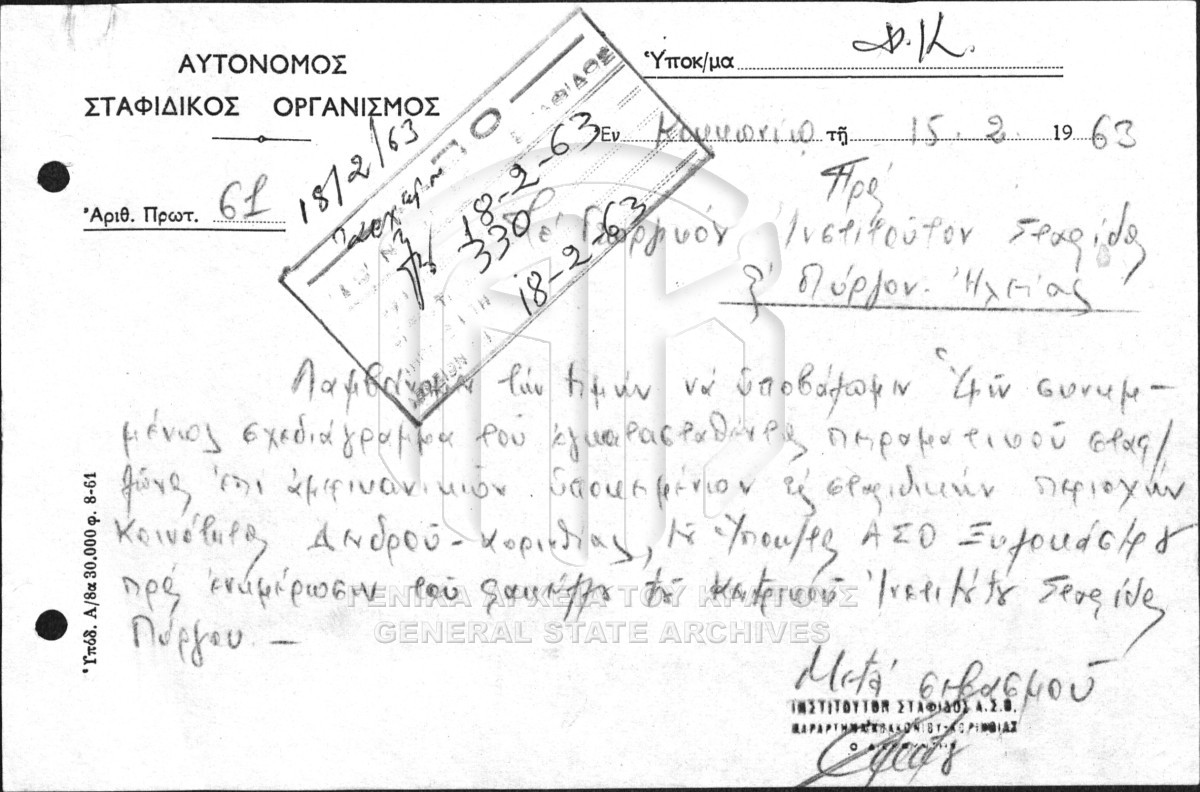 ΑΥΤΟΝΟΜΟΣ
ΣΤΑΦΙΔΙΚΟΣ ΟΡΓΑΝΙΣΜΟΣ
Ὑποκ/μα Δ.Κ.
Ἐν τῇ 15.2. 1963
Ἀριθ. Πρωτ. 61
18/2/63
18-2-63
330
18-2-63
Πρός
Ἰνστιτοῦτον Σταφίδος
Πύργον - Ἠλείας
Λαμβάνομεν τήν τιμήν νά ὑποβάλωμεν Ὑμῖν συνημ-
μένως σχεδιάγραμμα τοῦ ἐγκατασταθέντος πειραματικοῦ σταφ/
ἐπί ἀμερικανικῶν ὑποκειμένων εἰς σταφιδικήν περιοχήν
Κοινότητος Δενδροῦ - Κορινθίας, Ὑποκ/τος ΑΣΟ Ξυλοκάστρου
πρός ἐνημέρωσιν τοῦ φακέλλου τοῦ Κεντρικοῦ Ἰνστιτούτου Σταφίδος
Πύργου. -
Μετά σεβασμοῦ
ΙΝΣΤΙΤΟΥΤΟΝ ΣΤΑΦΙΔΟΣ Α.Σ.Ο.
ΠΑΡΑΡΤΗΜΑ ΚΟΡΙΝΘΙΑΣ
Ὑπόδ. Α/8α 30.000 φ. 8-61
ΓΕΝΙΚΑ ΑΡΧΕΙΑ ΤΟΥ ΚΡΑΤΟΥΣ
GENERAL STATE ARCHIVES